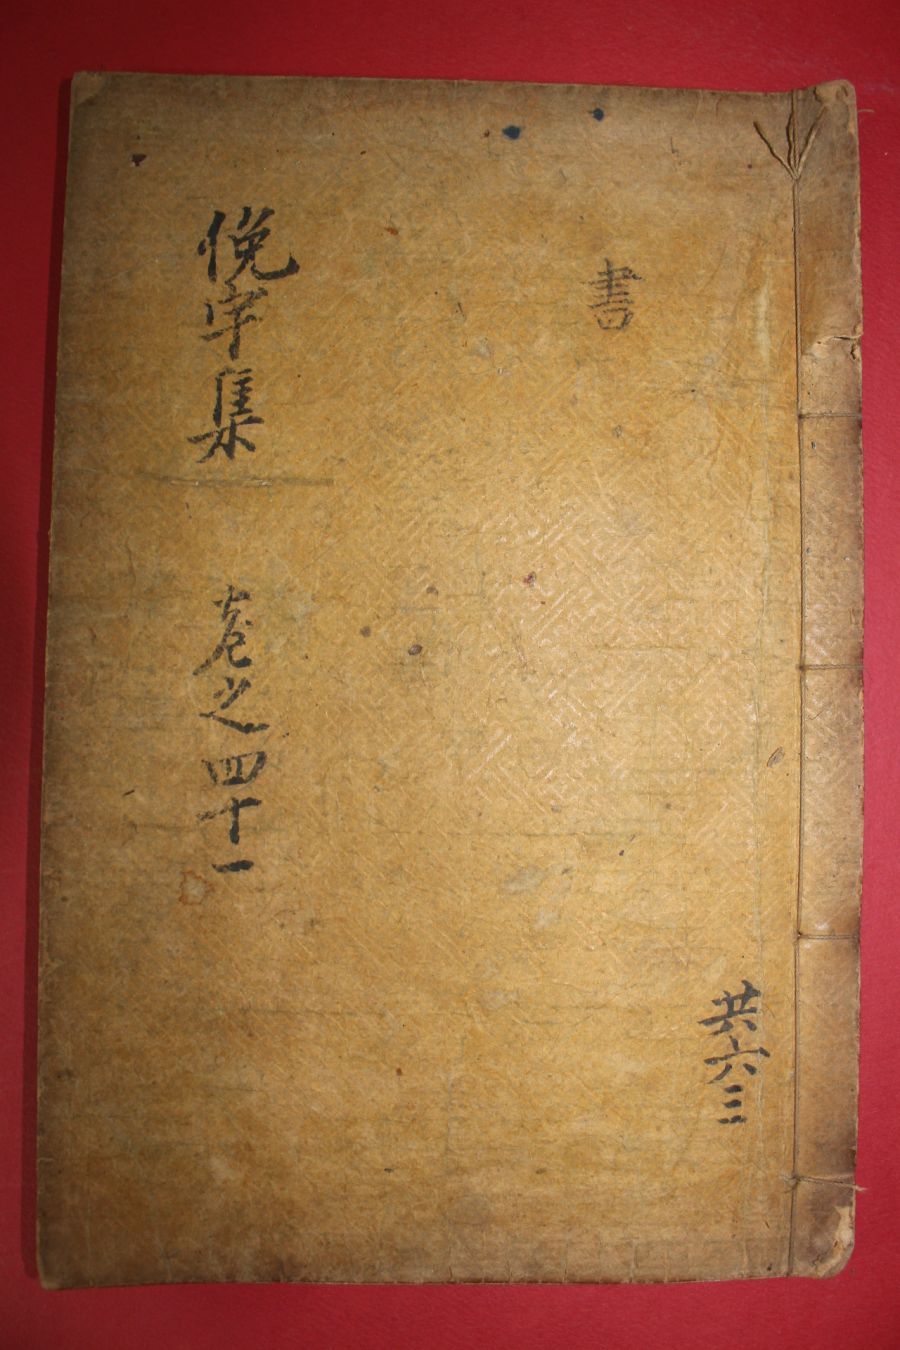 書
共六三
俛宇集 卷之四十一